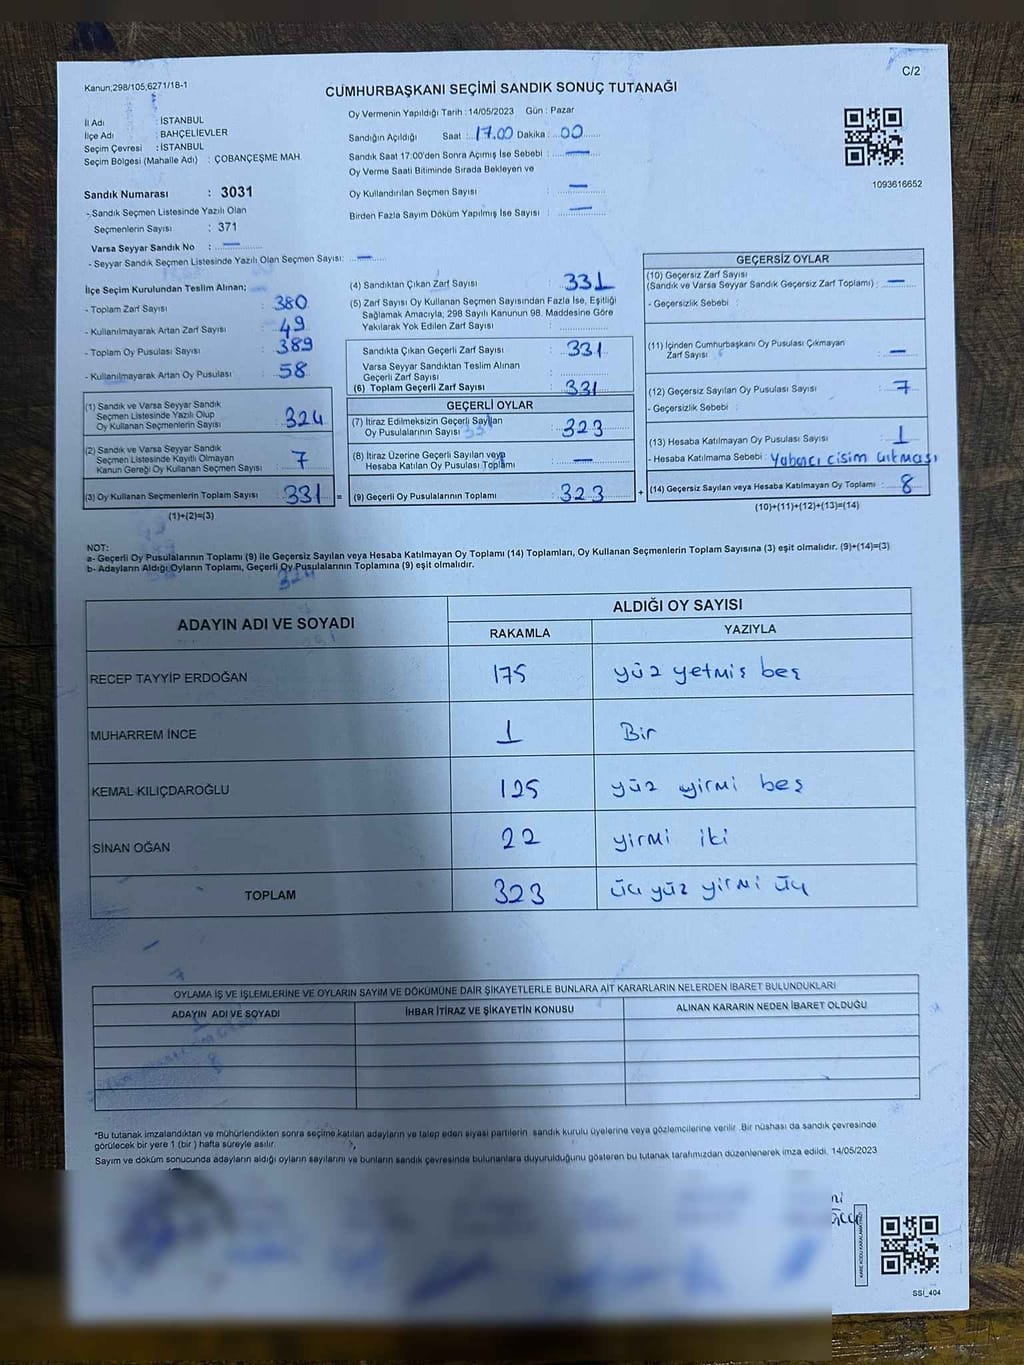 Kanun;298/105,6271/18-1
C/2
CUMHURBAŞKANI SEÇİMİ SANDIK SONUÇ TUTANAĞI
İl Adı : İSTANBUL
İlçe Adı : BAHÇELİEVLER
Seçim Çevresi : İSTANBUL
Seçim Bölgesi (Mahalle Adı) : ÇOBANÇEŞME MAH.
Sandık Numarası : 3031
- Sandık Seçmen Listesinde Yazılı Olan
Seçmenlerin Sayısı : 371
Varsa Seyyar Sandık No : —
- Seyyar Sandık Seçmen Listesinde Yazılı Olan Seçmen Sayısı: —
Oy Vermenin Yapıldığı Tarih : 14/05/2023 Gün : Pazar
Sandığın Açıldığı Saat : 17.00 Dakika : 00
Sandık Saat 17:00'den Sonra Açımış İse Sebebi : —
Oy Verme Saati Bitiminde Sırada Bekleyen ve
Oy Kullandırılan Seçmen Sayısı —
Birden Fazla Sayım Döküm Yapılmış İse Sayısı : —
1093616652
İlçe Seçim Kurulundan Teslim Alınan;
- Toplam Zarf Sayısı : 380
- Kullanılmayarak Artan Zarf Sayısı : 49
- Toplam Oy Pusulası Sayısı : 389
- Kullanılmayarak Artan Oy Pusulası : 58
(1) Sandık ve Varsa Seyyar Sandık
Seçmen Listesinde Yazılı Olup
Oy Kullanan Seçmenlerin Sayısı : 324
(2) Sandık ve Varsa Seyyar Sandık
Seçmen Listesinde Kayıtlı Olmayan
Kanun Gereği Oy Kullanan Seçmen Sayısı : 7
(3) Oy Kullanan Seçmenlerin Toplam Sayısı : 331 =
(1)+(2)=(3)
(4) Sandıktan Çıkan Zarf Sayısı : 331
(5) Zarf Sayısı Oy Kullanan Seçmen Sayısından Fazla İse, Eşitliği
Sağlamak Amacıyla, 298 Sayılı Kanunun 98. Maddesine Göre
Yakılarak Yok Edilen Zarf Sayısı :
Sandıkta Çıkan Geçerli Zarf Sayısı : 331
Varsa Seyyar Sandıktan Teslim Alınan
Geçerli Zarf Sayısı :
(6) Toplam Geçerli Zarf Sayısı : 331
GEÇERLİ OYLAR
(7) İtiraz Edilmeksizin Geçerli Sayılan
Oy Pusulalarının Sayısı : 323
(8) İtiraz Üzerine Geçerli Sayılan veya
Hesaba Katılan Oy Pusulası Toplamı : —
(9) Geçerli Oy Pusulalarının Toplamı : 323 +
GEÇERSİZ OYLAR
(10) Geçersiz Zarf Sayısı
(Sandık ve Varsa Seyyar Sandık Geçersiz Zarf Toplamı) : —
- Geçersizlik Sebebi :
(11) İçinden Cumhurbaşkanı Oy Pusulası Çıkmayan
Zarf Sayısı : —
(12) Geçersiz Sayılan Oy Pusulası Sayısı : 7
- Geçersizlik Sebebi :
(13) Hesaba Katılmayan Oy Pusulası Sayısı : 1
- Hesaba Katılmama Sebebi : Yabancı cisim çıkması
(14) Geçersiz Sayılan veya Hesaba Katılmayan Oy Toplamı : 8
(10)+(11)+(12)+(13)=(14)
NOT:
a- Geçerli Oy Pusulalarının Toplamı (9) ile Geçersiz Sayılan veya Hesaba Katılmayan Oy Toplamı (14) Toplamları, Oy Kullanan Seçmenlerin Toplam Sayısına (3) eşit olmalıdır. (9)+(14)=(3)
b- Adayların Aldığı Oyların Toplamı, Geçerli Oy Pusulalarının Toplamına (9) eşit olmalıdır.
ADAYIN ADI VE SOYADI
ALDIĞI OY SAYISI
RAKAMLA YAZIYLA
RECEP TAYYİP ERDOĞAN 175 yüz yetmiş beş
MUHARREM İNCE 1 Bir
KEMAL KILIÇDAROĞLU 125 yüz yirmi beş
SİNAN OĞAN 22 yirmi iki
TOPLAM 323 üç yüz yirmi üç
OYLAMA İŞ VE İŞLEMLERİNE VE OYLARIN SAYIM VE DÖKÜMÜNE DAİR ŞİKAYETLERLE BUNLARA AİT KARARLARIN NELERDEN İBARET BULUNDUKLARI
ADAYIN ADI VE SOYADI İHBAR İTİRAZ VE ŞİKAYETİN KONUSU ALINAN KARARIN NEDEN İBARET OLDUĞU
*Bu tutanak imzalandıktan ve mühürlendikten sonra seçime katılan adayların ve talep eden siyasi partilerin sandık kurulu üyelerine veya gözlemcilerine verilir. Bir nüshası da sandık çevresinde
görülecek bir yere 1 (bir ) hafta süreyle asılır.
Sayım ve döküm sonucunda adayların aldığı oyların sayılarını ve bunların sandık çevresinde bulunanlara duyurulduğunu gösteren bu tutanak tarafımızdan düzenlenerek imza edildi. 14/05/2023
KARE KODU KARALAMAYINIZ!
SSİ_404